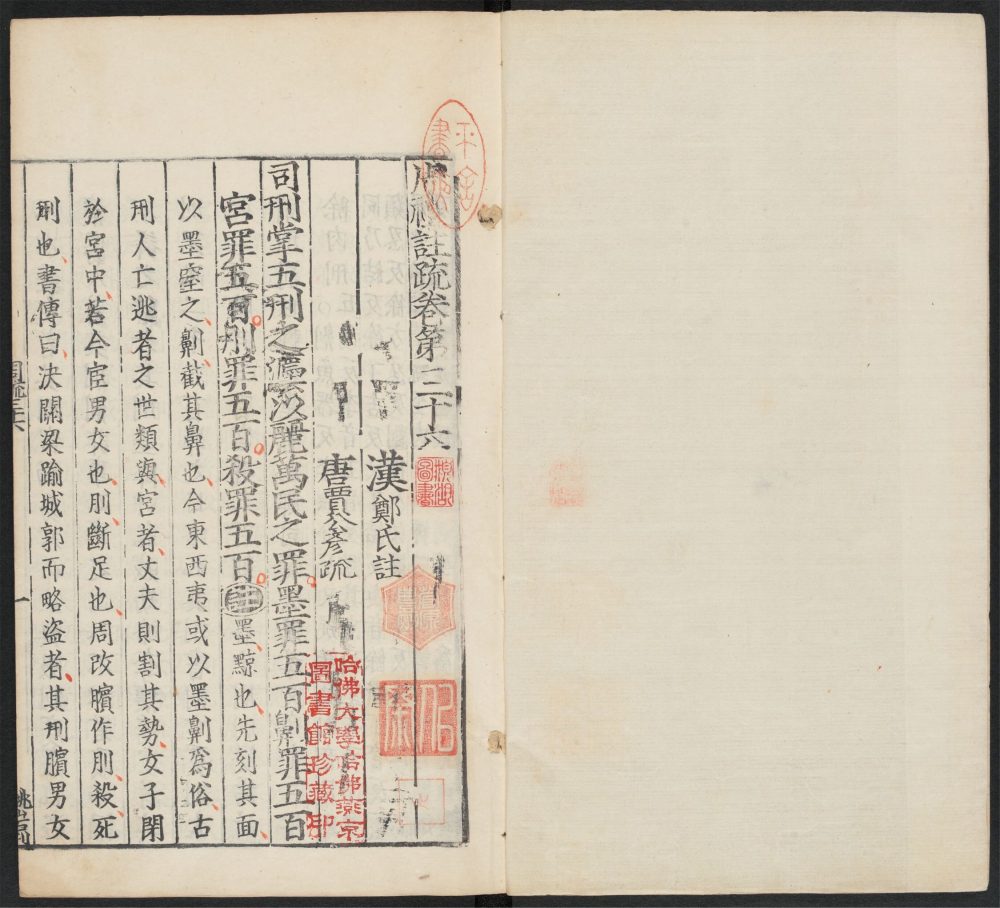 周禮註疏卷第三十六
漢鄭氏註
唐賈公彥疏
司刑掌五刑之灋以麗萬民之罪墨罪五百劓罪五百
宮罪五百刖罪五百殺罪五百註墨黥也先刻其面
以墨窒之劓截其鼻也今東西夷或以墨劓爲俗古
刑人亡逃者之世類與宮者丈夫則割其勢女子閉
於宮中若今宦男女也刖斷足也周改臏作刖殺死
刑也書傳曰決關梁踰城郭而略盜者其刑臏男女
一
哈佛大學哈佛燕京
圖書館珍藏印